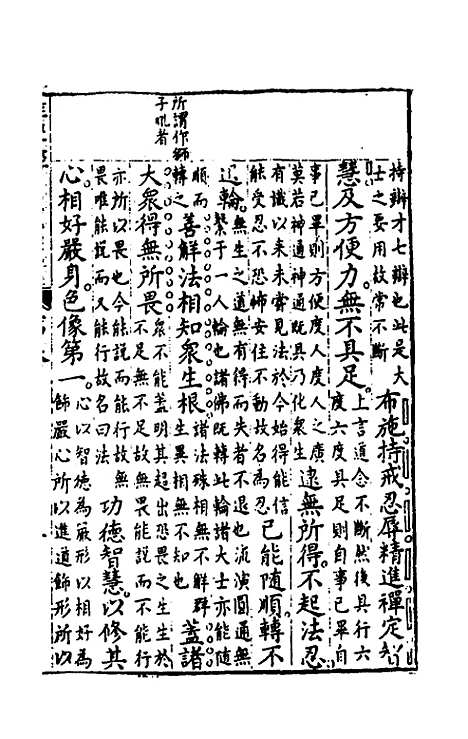 所謂作師
子吼者
持辯才七辯也此是大
士之要用故常不斷
布施持戒忍辱精進禪定智
慧及方便力無不具足。
上言道念不斷然後具行六
度六度具足則自事已畢自
事已畢則方便度人度人之廣
莫若神通神通既具乃化衆生
逮無所得。不起法忍。
有識以來未嘗見法於今始得能信
能受忍不恐怖安住不動故名為忍
已能隨順轉不
退輪。
無生之道無有得而失者不退也流演圓通無
繫于一人輪也諸佛既轉此輪諸大士亦能隨
順而
轉之
善解法相知衆生根。
諸法殊相無不解群
生異根無不知也
蓋諸
大衆得無所畏。
衆不能蓋明其超出恐畏之生生於
不足無不足故無畏能說而不能行
亦所以畏也今能說而能行故無
畏唯能說而又能行故名曰法
功德智慧。以修其
心。相好嚴身色像第一。
心以智德為嚴形以相好為
飾嚴心所以進道飾形所以